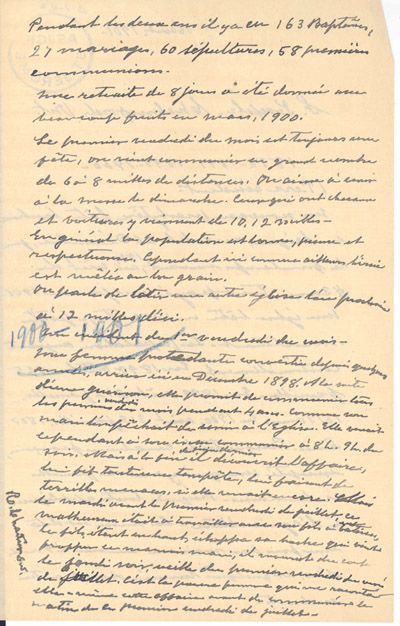 Pendant les deux ans il y a eu 163 Baptêmes,
27 mariages, 60 sépultures, 58 premières
communions.
Une retraite de 8 jours a été donnée avec
beaucoup fruits en mars, 1900.
Le premier vendredi du mois est toujours une
fête, on vient communier en grand nombre
de 6 à 8 milles de distances. On aime à venir
à la messe le dimanche. Ceux qui ont chevaux
et voitures y viennent de 10, 12 milles -
En général la population est bonne, pieuse et
respectueuse. Cependant ici comme ailleurs l'ivraie
est mêlée au bon grain.
On parle de bâtir une autre église l'an prochain
à 12 milles d'ici.
1900 - 1901
du 1er vendredi du mois -
Une femme protestante convertie depuis quelques
années, arriva ici en Décembre 1898.
d'une guérison, elle promit de communier tous
les premiers vendredi du mois, pendant 4 ans. Comme son
mari l'empêchait de venir à l'Eglise. Elle venait
cependant à son insu communier à 8h. 9h. du
soir. Mais à la fin il découvrit l'affaire,
lui fit toute une tempête, lui faisant de
terribles menaces, si elle venait encore.
le mardi avant le premier vendredi de juillet, ce
malheureux était à travailler avec son fils
le fils, échappa sa hache qui vint
frapper ce mauvais mari, il mourut du coup
le jeudi soir, veille du premier vendredi du mois
de juillet. C'est la pauvre femme qui me raconta
elle-même cette affaire avant de communier le
matin de la premier vendredi de juillet -